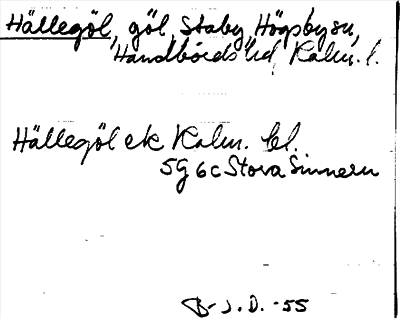 Hällegöl, göl, Staby, Högsby sn,
Handbörds hd, Kalm. l.
Hällegöl ek Kalm. bl.
5G 6c Stora Sinnern
B-J. D. -55